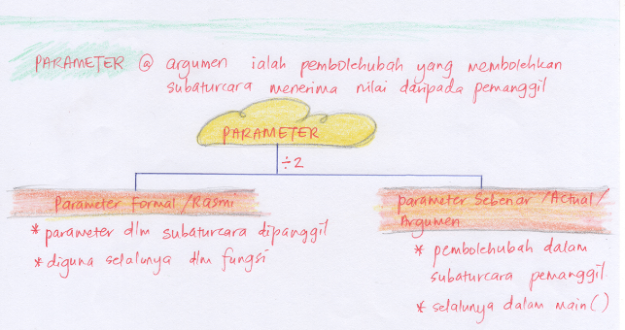 PARAMETER @ argumen ialah pembolehubah yang membolehkan
subaturcara menerima nilai daripada pemanggil
PARAMETER
÷2
Parameter Formal/Rasmi
* parameter dlm subaturcara dipanggil
* diguna selalunya dlm fungsi
parameter Sebenar/Actual/
Argumen
* pembolehubah dalam
subaturcara pemanggil
* selalunya dalam main()